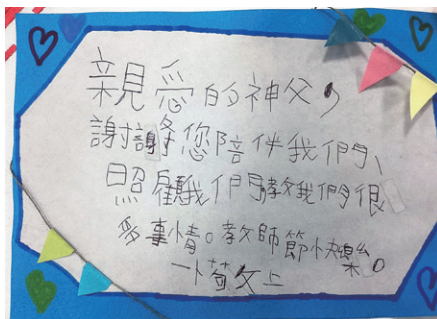 親愛的神父，
謝謝您陪伴我們、
照顧我們教我們很
多事情。教師節快樂。
一下苟文上